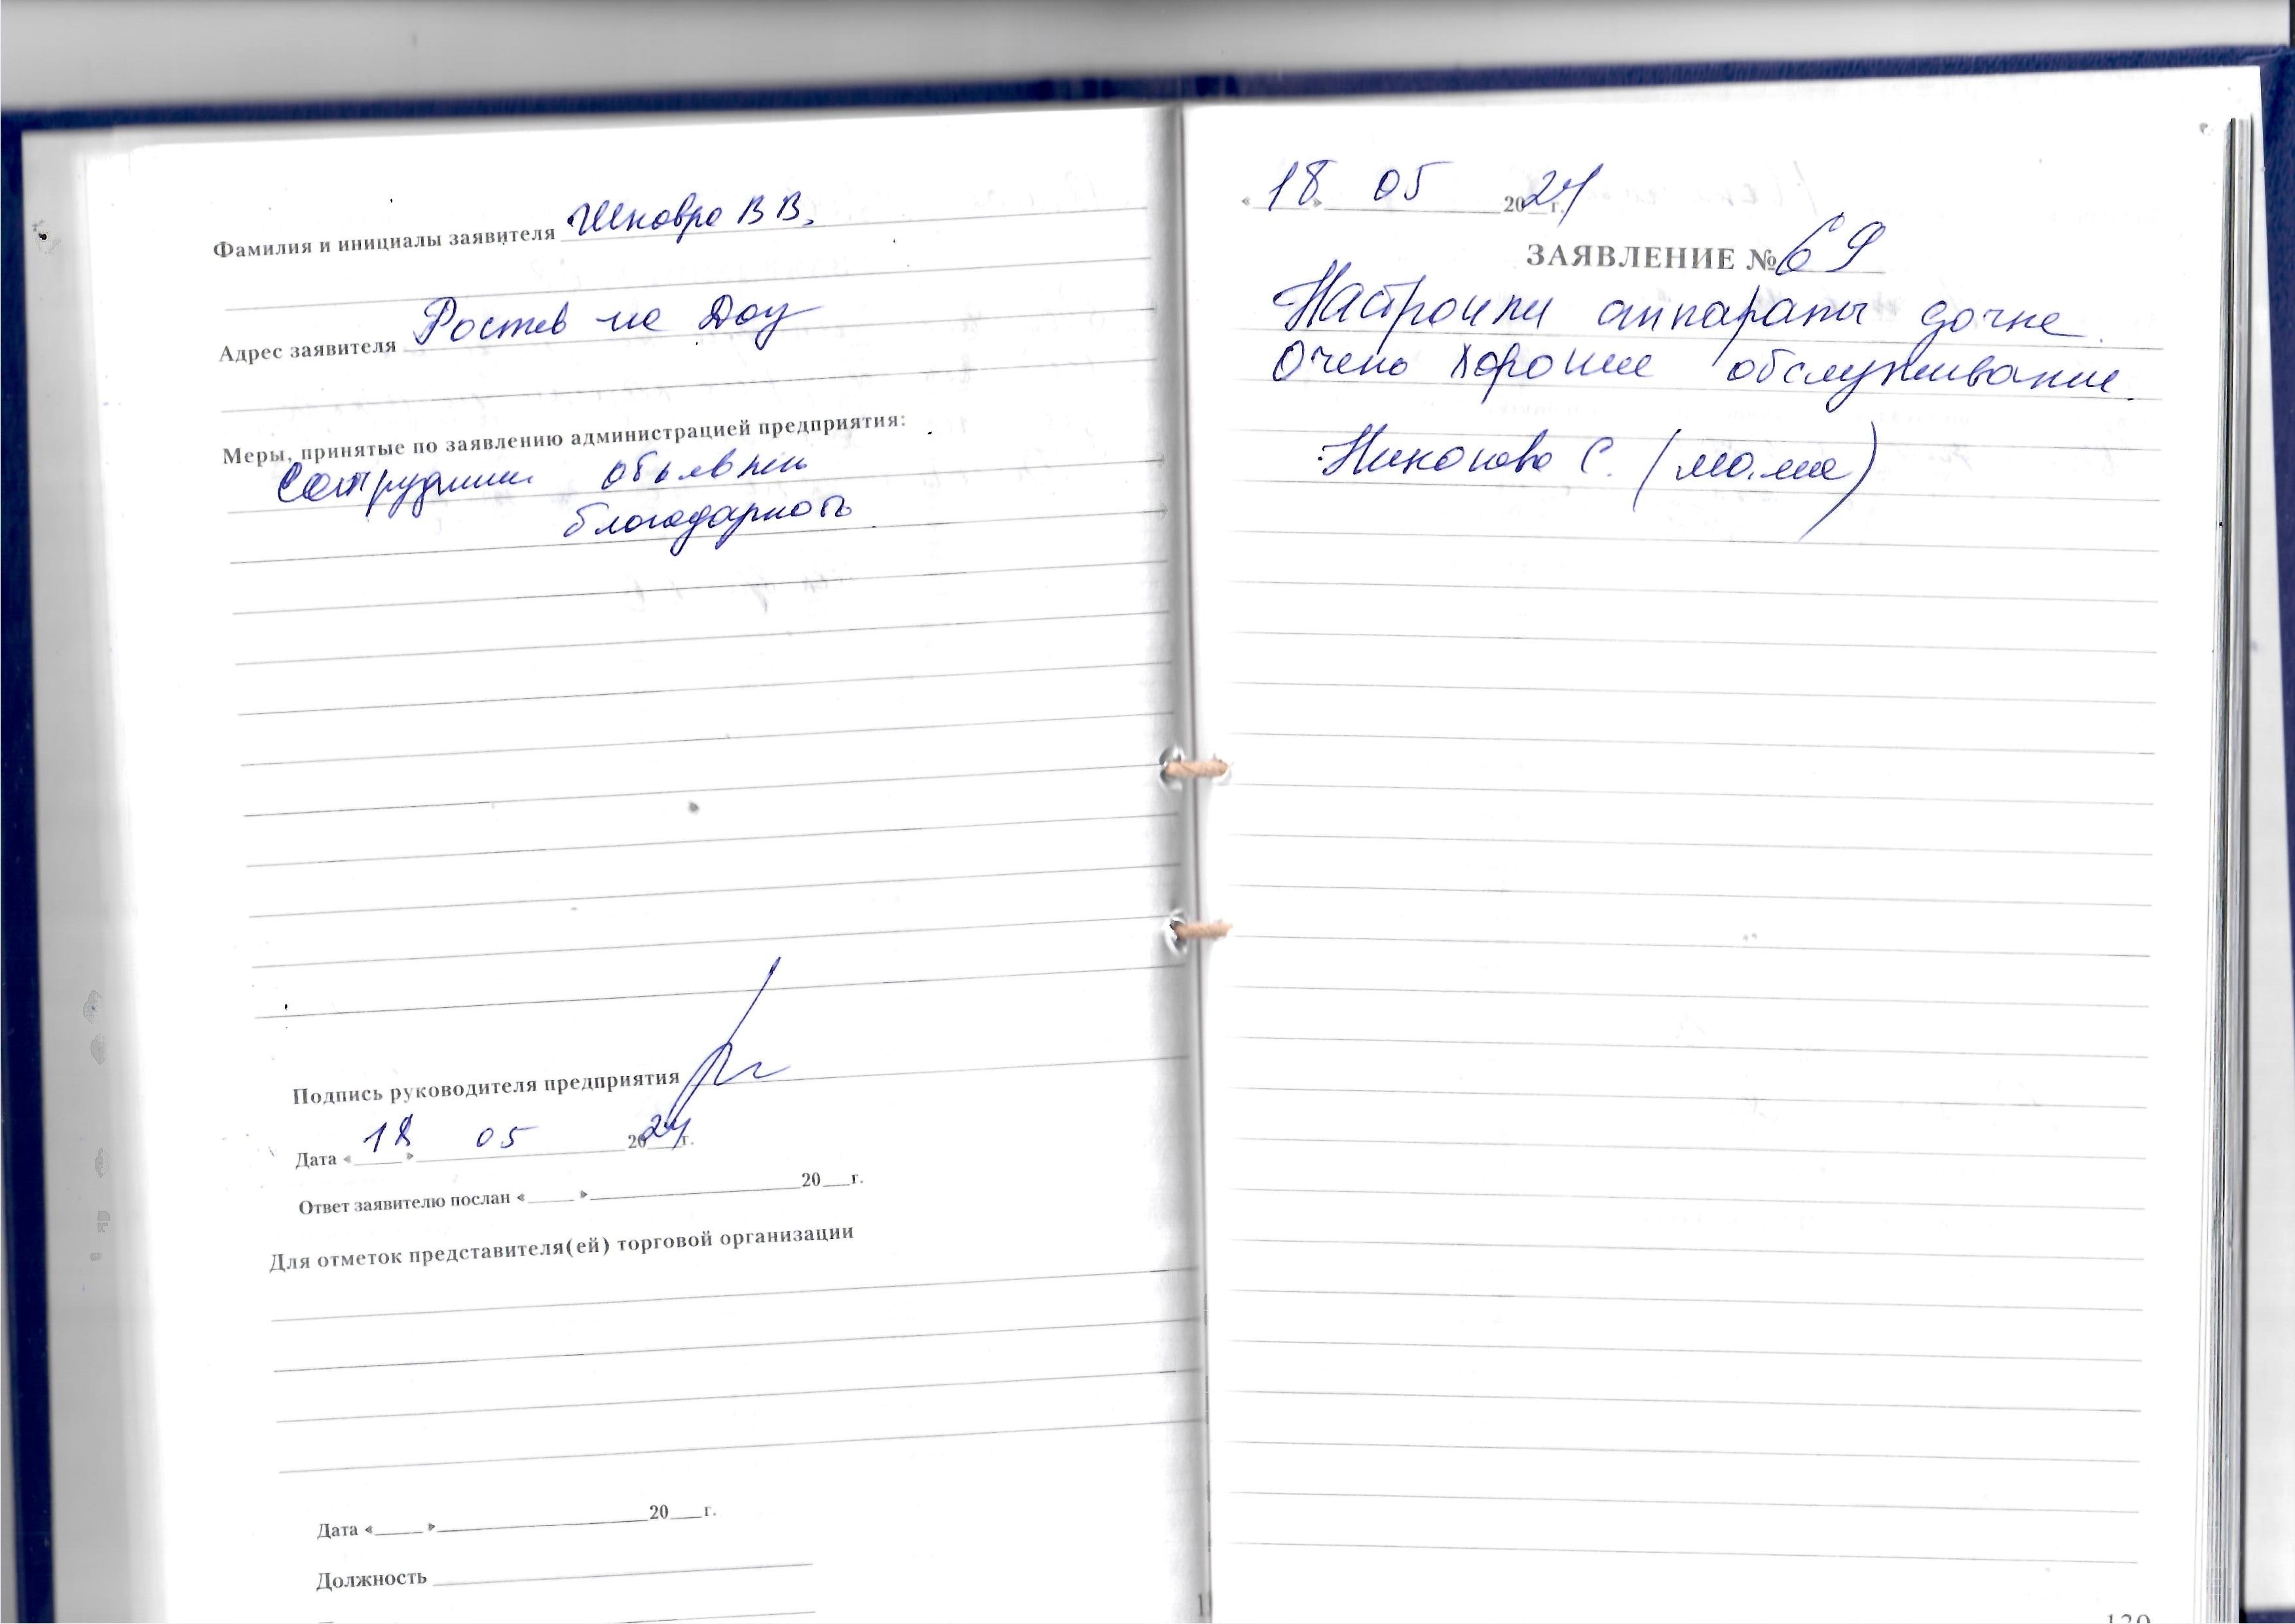 Фамилия и инициалы заявителя Шковра В В.
Адрес заявителя Ростов на Дону
Меры, принятые по заявлению администрацией предприятия:
объявлен
благодарность
Подпись руководителя предприятия
Дата « 18 » 05 2024 г.
Ответ заявителю послан « » 20 г.
Для отметок представителя(ей) торговой организации
Дата « » 20 г.
Должность
« 18 » 05 2024 г.
ЗАЯВЛЕНИЕ № 69
Настроили аппараты дочке.
Очень хорошее обслуживание.
Никонова С. (мама)